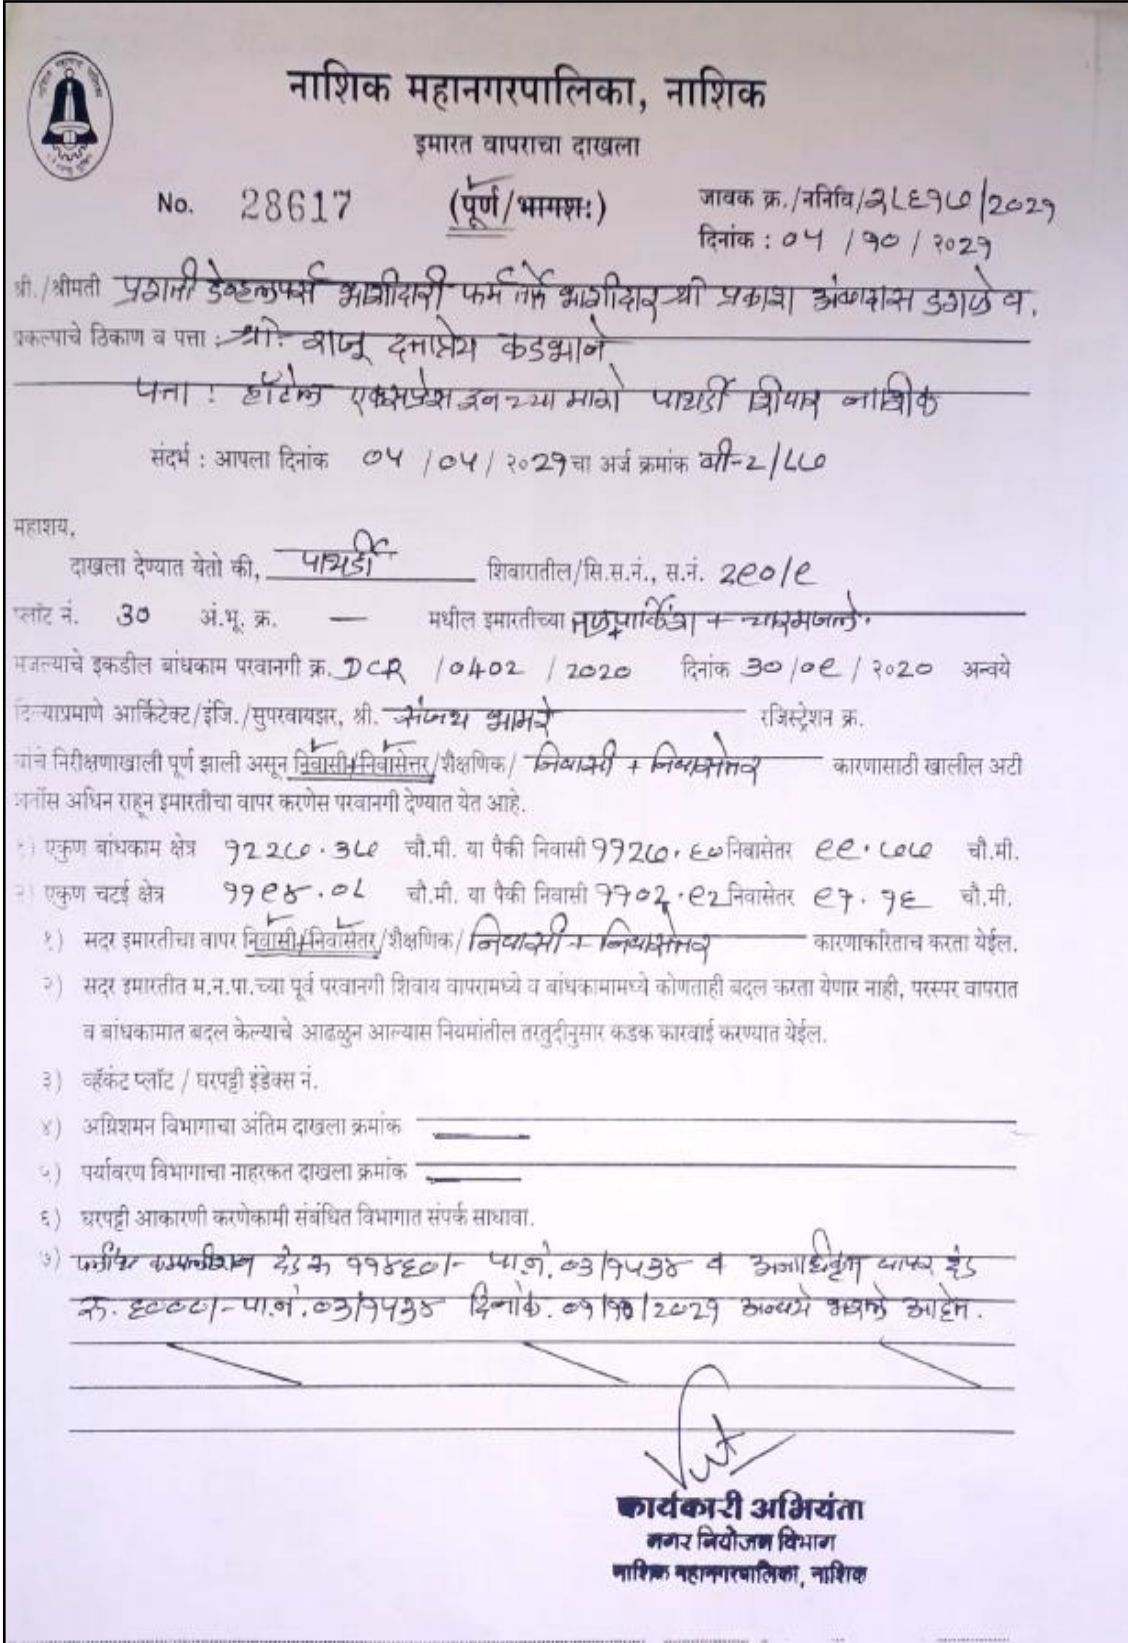 नाशिक महानगरपालिका, नाशिक
इमारत वापराचा दाखला
No. 28617 (पूर्ण/भागशः) जावक क्र./ननिवि/२८६१७/२०२१
दिनांक : ०५ / १० / २०२१
श्री./श्रीमती प्रगती डेव्हलपर्स भागीदारी फर्म तर्फे भागीदार श्री प्रकाश अंबादास डगळे व.
प्रकल्पाचे ठिकाण व पत्ता : श्री. राजू दत्तात्रेय कडभाने
पत्ता : हॉटेल एक्सप्रेस इनच्या मागे पाथर्डी शिवार नाशिक
संदर्भ : आपला दिनांक ०५ / ०५ / २०२१ चा अर्ज क्रमांक सी-2/८८७
महाशय,
दाखला देण्यात येतो की, पाथर्डी शिवारातील/सि.स.नं., स.नं. २९०/९
प्लॉट नं. ३० अं.भू. क्र. — मधील इमारतीच्या तळपार्किंग + चारमजले.
मजल्याचे इकडील बांधकाम परवानगी क्र. DCR /०४०२ / २०२० दिनांक ३०/०९/ २०२० अन्वये
दिल्याप्रमाणे आर्किटेक्ट/इंजि./सुपरवायझर, श्री. संजय भामरे रजिस्ट्रेशन क्र.
यांचे निरीक्षणाखाली पूर्ण झाली असून निवासी/निवासेत्तर/शैक्षणिक/ निवासी + निवासेत्तर कारणासाठी खालील अटी
शर्तीस अधिन राहून इमारतीचा वापर करणेस परवानगी देण्यात येत आहे.
१) एकुण बांधकाम क्षेत्र १२२७.३७ चौ.मी. या पैकी निवासी ११२७.६० निवासेतर ९९.७७ चौ.मी.
२) एकुण चटई क्षेत्र ११९४.०८ चौ.मी. या पैकी निवासी ११०२.९२ निवासेतर ९१.१६ चौ.मी.
१) सदर इमारतीचा वापर निवासी/निवासेतर/शैक्षणिक/ निवासी + निवासेत्तर कारणाकरिताच करता येईल.
२) सदर इमारतीत म.न.पा.च्या पूर्व परवानगी शिवाय वापरामध्ये व बांधकामामध्ये कोणताही बदल करता येणार नाही, परस्पर वापरात
व बांधकामात बदल केल्याचे आढळुन आल्यास नियमांतील तरतुदीनुसार कडक कारवाई करण्यात येईल.
३) व्हॅकंट प्लॉट / घरपट्टी इंडेक्स नं.
४) अग्निशमन विभागाचा अंतिम दाखला क्रमांक
५) पर्यावरण विभागाचा नाहरकत दाखला क्रमांक
६) घरपट्टी आकारणी करणेकामी संबंधित विभागात संपर्क साधावा.
७) दंड रु ११४६०/- पा.नं. ०३/१५३४ व अनाधिकृत वापर दंड
रु. ६०००/- पा.नं. ०३/१५३४ दिनांक. ०१/१०/२०२१ अन्वये भरले आहेत.
कार्यकारी अभियंता
नगर नियोजन विभाग
नाशिक महानगरपालिका, नाशिक